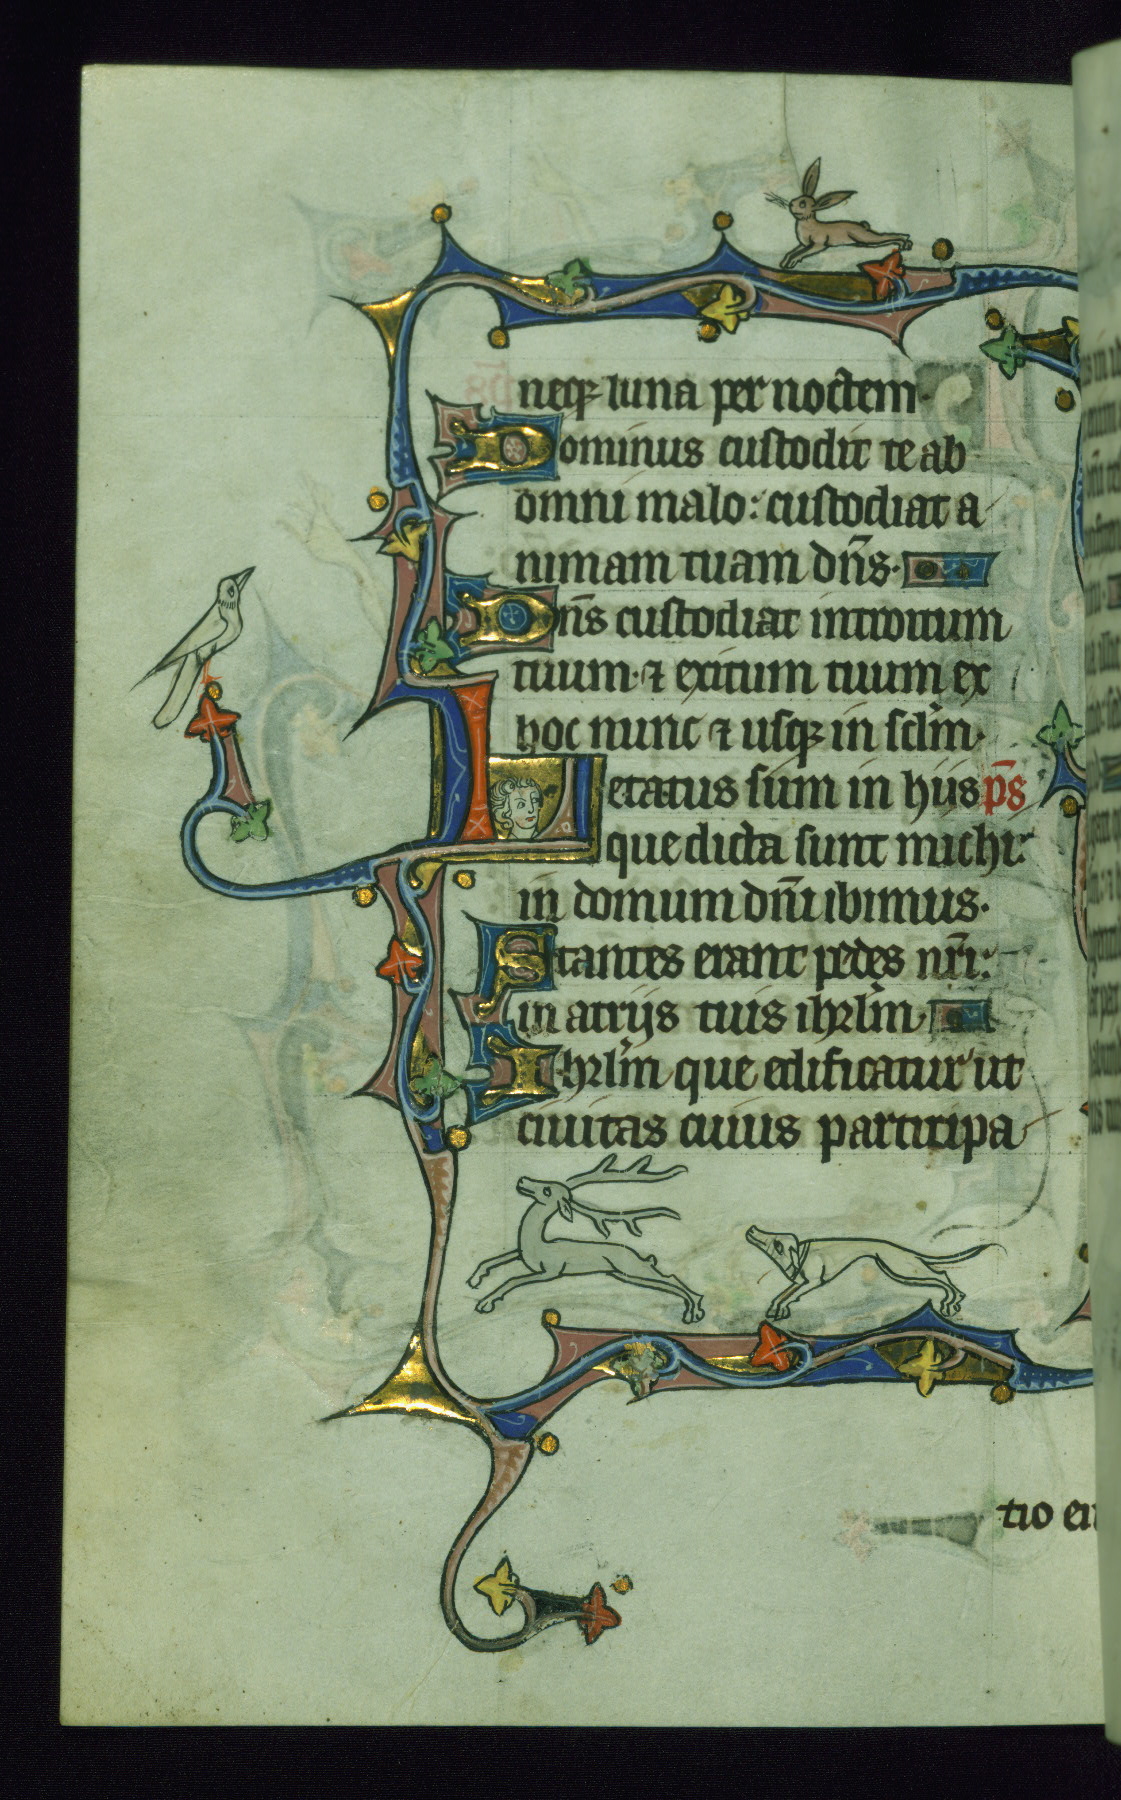 neqꝫ luna per noctem·
Dominus custodit te ab
omni malo: custodiat a
nimam tuam dn̄s·
Dn̄s custodiat introitum
tuum· ⁊ exitum tuum ex
hoc nunc ⁊ usqꝫ in sclm·
Letatus sum in hiis p̄s
que dicta sunt michi:
in domum dn̄i ibimus·
Stantes erant pedes nr̄i:
in atrijs tuis ihrlm·
Ihrlm que edificatur ut
ciuitas cuius participa
tio ei